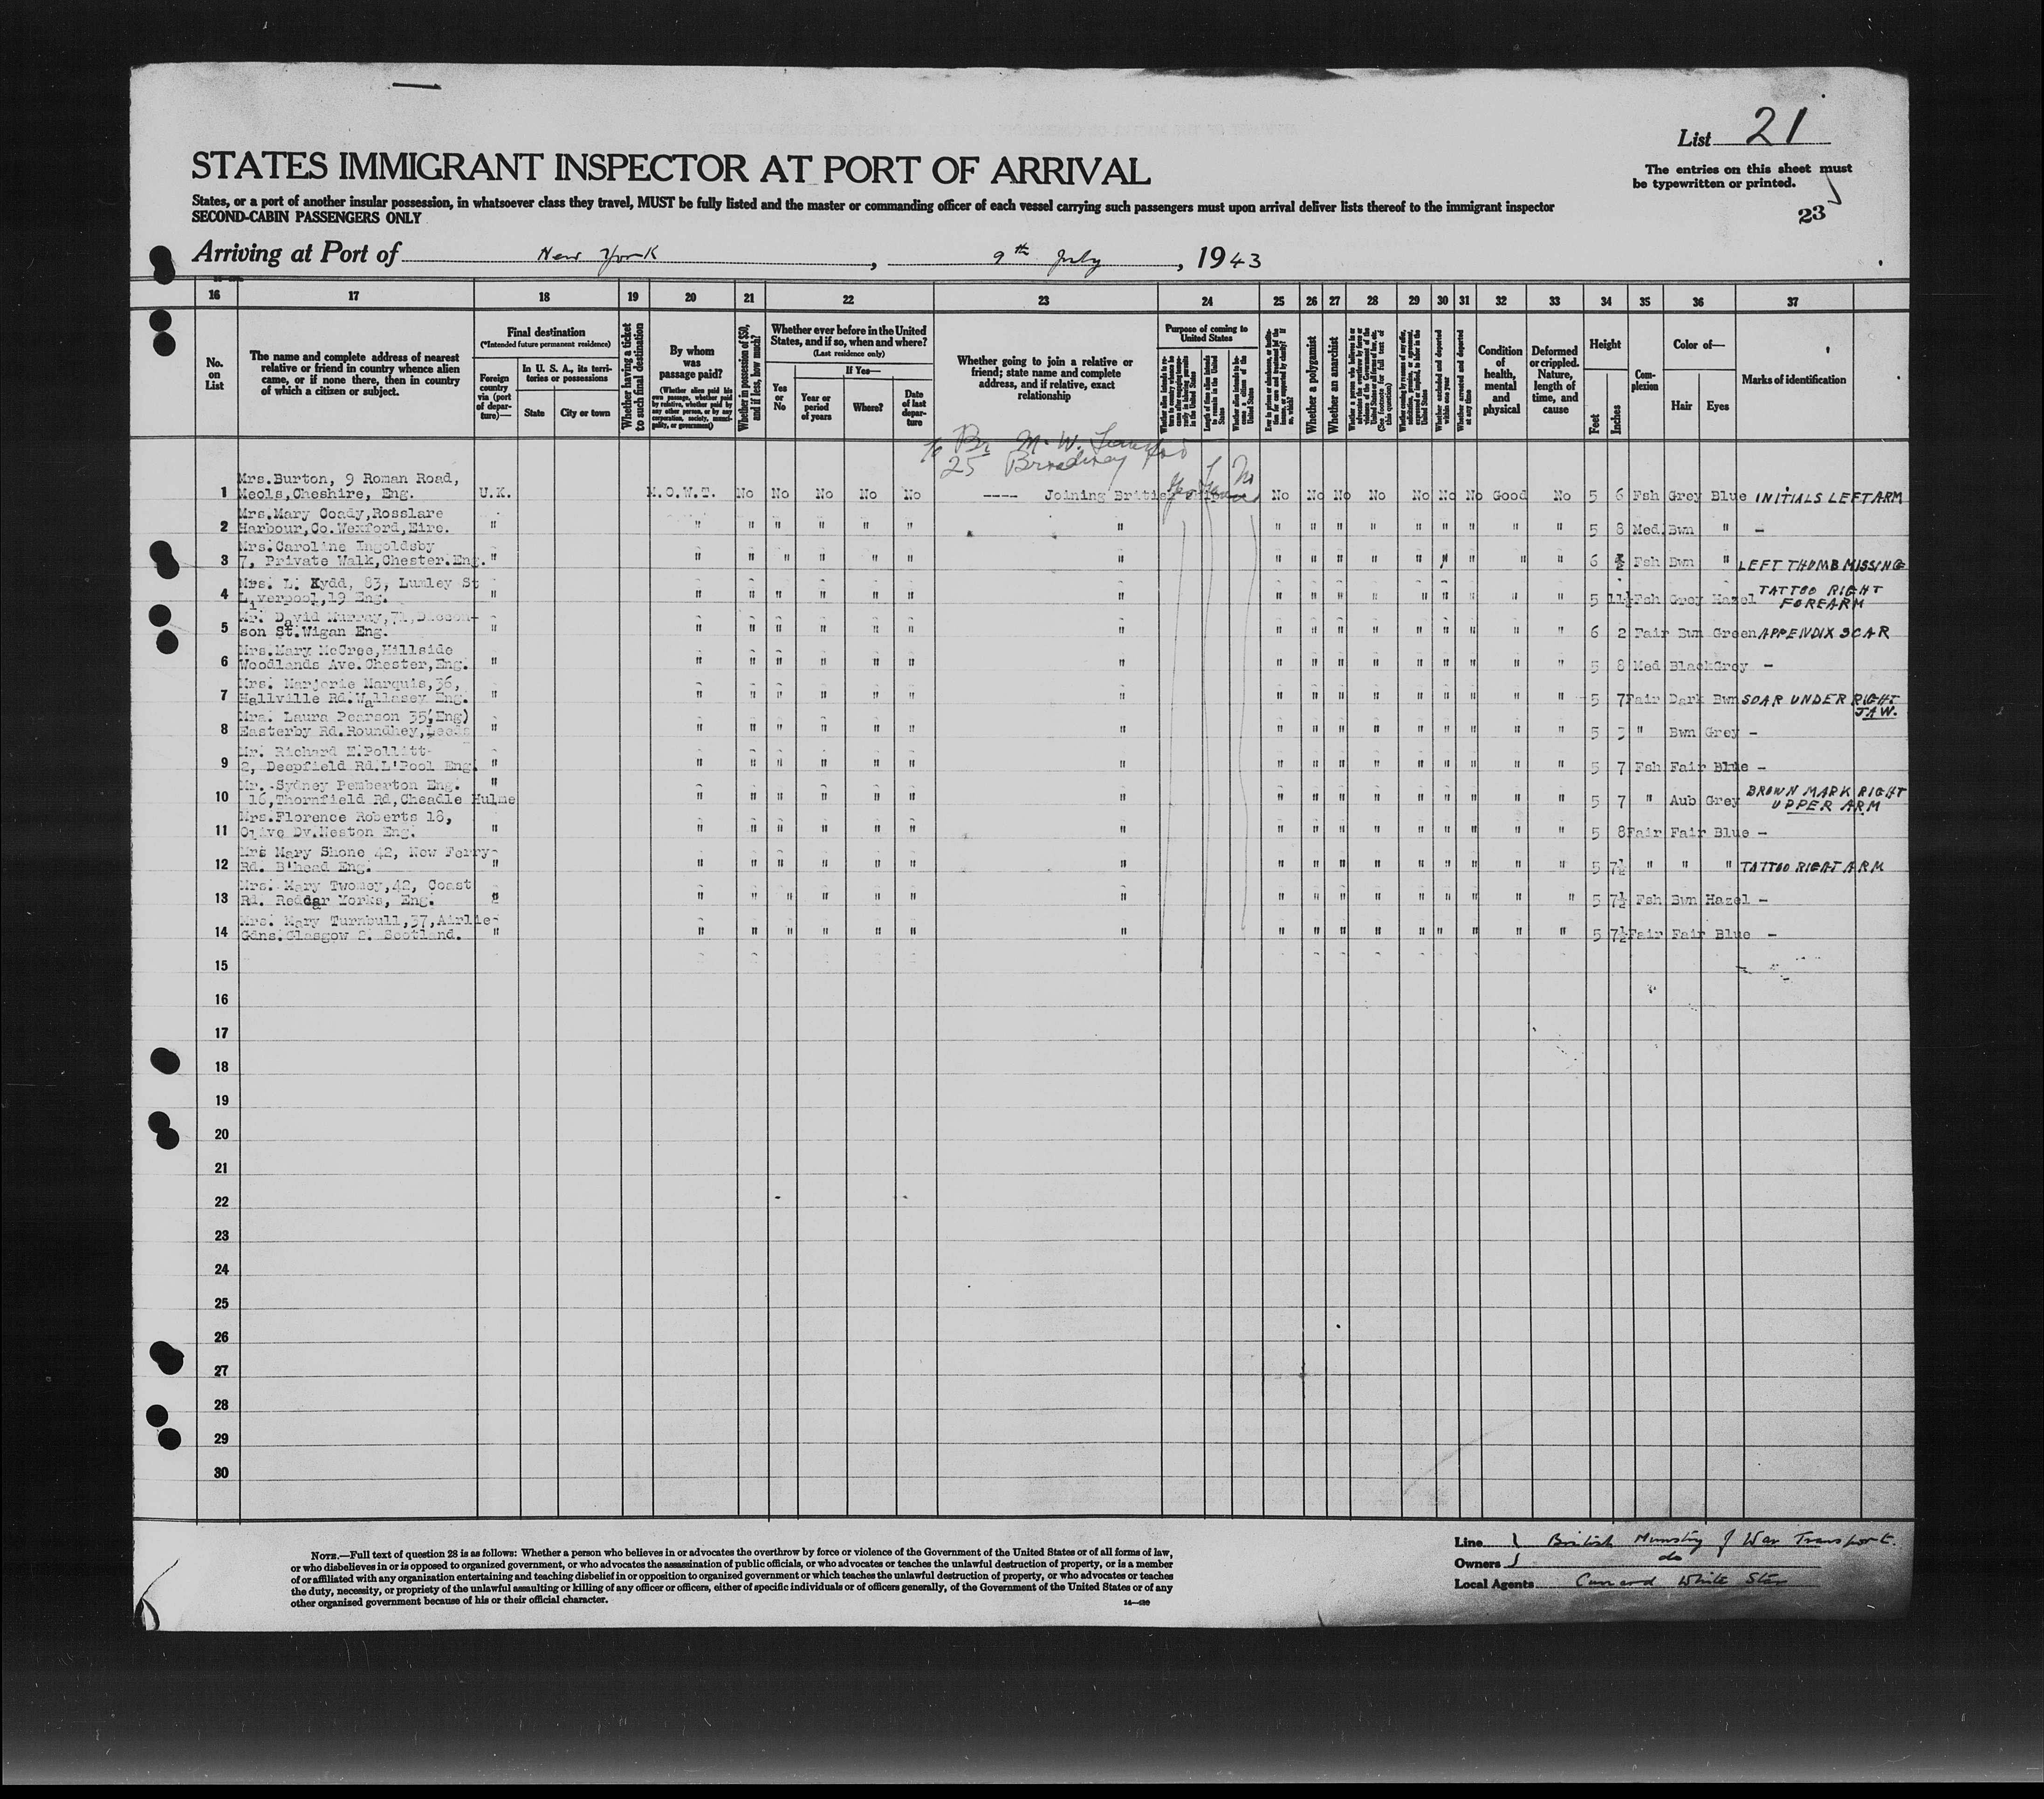 List 21
STATES IMMIGRANT INSPECTOR AT PORT OF ARRIVAL
The entries on this sheet must
be typewritten or printed.
States, or a port of another insular possession, in whatsoever class they travel, MUST be fully listed and the master or commanding officer of each vessel carrying such passengers must upon arrival deliver lists thereof to the immigrant inspector
SECOND-CABIN PASSENGERS ONLY
23
Arriving at Port of New York, 9th July, 1943
16 17 18 19 20 21 22 23 24 25 26 27 28 29 30 31 32 33 34 35 36 37
No. on List
The name and complete address of nearest
relative or friend in country whence alien
came, or if none there, then in country
of which a citizen or subject.
Final destination
(*Intended future permanent residence)
Foreign country via (port of departure)—
In U. S. A., its territories or possessions
State
City or town
Whether having a ticket to such final destination
By whom was passage paid?
(Whether alien paid his own passage, whether paid by relative, whether paid by any other person, or by any corporation, society, municipality, or government)
Whether in possession of $50, and if less, how much?
Whether ever before in the United States, and if so, when and where?
(Last residence only)
Yes or No
If Yes—
Year or period of years
Where?
Date of last departure
Whether going to join a relative or
friend; state name and complete
address, and if relative, exact
relationship
Purpose of coming to United States
Whether a polygamist
Whether an anarchist
Whether excluded and deported within one year
Whether arrested and deported at any time
Condition of health, mental and physical
Deformed or crippled. Nature, length of time, and cause
Height
Feet
Inches
Complexion
Color of—
Hair
Eyes
Marks of identification
25 Broadway
Mrs.Burton, 9 Roman Road,
1 Meols,Cheshire, Eng. U.K. M.O.W.T. No No No No No ---- Joining British No No No No No No No Good No 5 6 Fsh Grey Blue INITIALS LEFT ARM
Mrs.Mary Coady,Rosslare
2 Harbour,Co.Wexford,Eire. " " " " " " " " " " " " " " " " " " 5 8 Med Bwn " -
Mrs.Caroline Ingoldsby
3 7, Private Walk,Chester.Eng. " " " " " " " " " " " " " " " " " " 6 ½ Fsh Bwn " LEFT THUMB MISSING
Mrs. L. Kydd, 83, Lumley St
4 Liverpool,19 Eng. " " " " " " " " " " " " " " " " " " 5 11½ Fsh Grey Hazel TATTOO RIGHT
FOREARM
Mr. David Murray,
5 son St.Wigan Eng. " " " " " " " " " " " " " " " " " " 6 2 Fair Bwn Green APPENDIX SCAR
Mrs.Mary McCree,Hillside
6 Woodlands Ave.Chester,Eng. " " " " " " " " " " " " " " " " " " 5 8 Med Black Grey -
Mrs. Marjorie Marquis,36,
7 Hallville Rd.Wallasey Eng. " " " " " " " " " " " " " " " " " " 5 7 Fair Dark Bwn SCAR UNDER RIGHT
JAW.
Mrs. Laura Pearson 35,(Eng)
8 Easterby Rd.Roundhey,Leeds " " " " " " " " " " " " " " " " " 5 3 " Bwn Grey -
Mr. Richard E.Pollitt
9 2, Deepfield Rd.L'Pool Eng. " " " " " " " " " " " " " " " " " " 5 7 Fsh Fair Blue -
Mr. Sydney Pemberton Eng. "
10 16,Thornfield Rd,Cheadle Hulme " " " " " " " " " " " " " " " " " 5 7 " Aub Grey BROWN MARK RIGHT
UPPER ARM
Mrs.Florence Roberts 18,
11 Olive Dv.Neston Eng. " " " " " " " " " " " " " " " " " " 5 8 Fair Fair Blue -
Mrs Mary Shone 42, New Ferry
12 Rd. B'head Eng. " " " " " " " " " " " " " " " " " " 5 7½ " " " TATTOO RIGHT ARM
Mrs. Mary Twomey,42, Coast
13 Rd. Redcar Yorks, Eng. " " " " " " " " " " " " " " " " " " 5 7½ Fsh Bwn Hazel -
Mrs. Mary Turnbull,37,Airlie
14 Gdns.Glasgow 2. Scotland. " " " " " " " " " " " " " " " " " " 5 7½ Fair Fair Blue -
15
16
17
18
19
20
21
22
23
24
25
26
27
28
29
30
NOTE.—Full text of question 28 is as follows: Whether a person who believes in or advocates the overthrow by force or violence of the Government of the United States or of all forms of law,
or who disbelieves in or is opposed to organized government, or who advocates the assassination of public officials, or who advocates or teaches the unlawful destruction of property, or is a member
of or affiliated with any organization entertaining and teaching disbelief in or opposition to organized government or which teaches the unlawful destruction of property, or who advocates or teaches
the duty, necessity, or propriety of the unlawful assaulting or killing of any officer or officers, either of specific individuals or of officers generally, of the Government of the United States or of any
other organized government because of his or their official character.
Line British Ministry of War Transport.
Owners do
Local Agents Cunard White Star